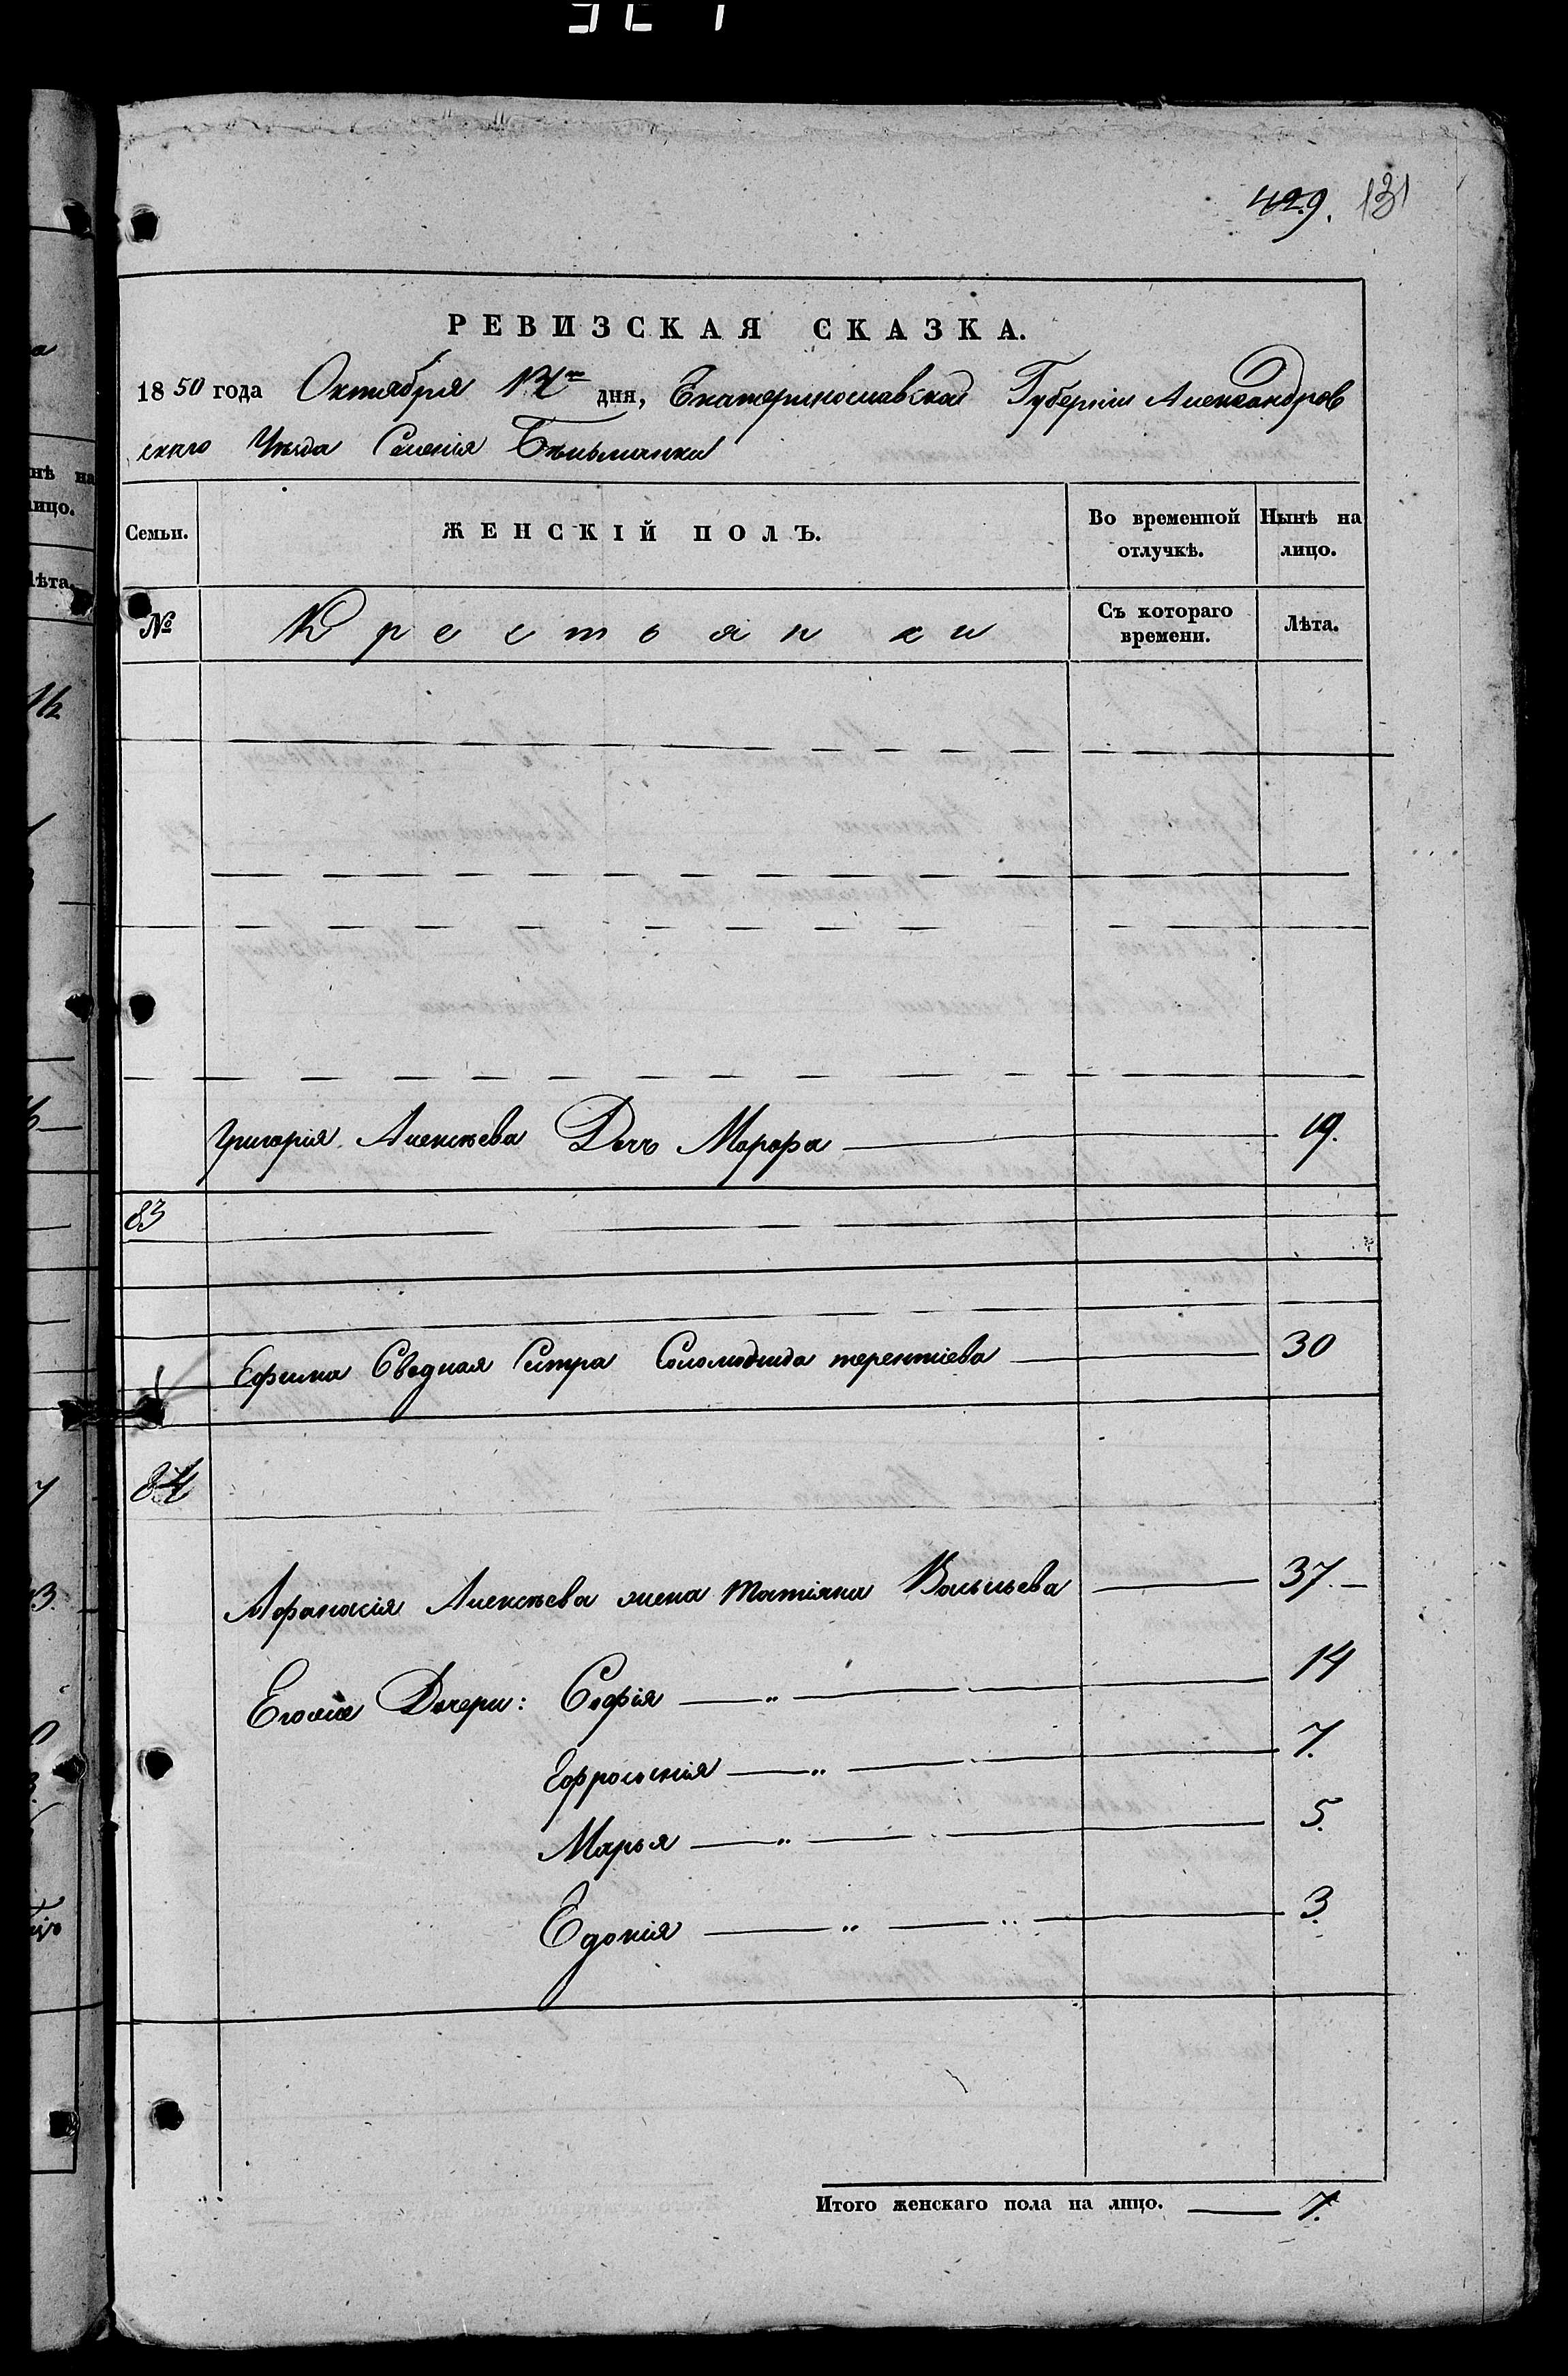 429. 131
РЕВИЗСКАЯ СКАЗКА.
1850 года Октября дня, Екатеринославской Губерніи Александров
скаго Уѣзда Селенія Бѣльманки
Семьи. ЖЕНСКІЙ ПОЛЪ. Во временной отлучкѣ. Нынѣ на лицо.
№ Крестьянки Съ котораго времени. Лѣта.
Григорія Алексѣева Дочь Марфа 19.
83
Ефима Сводная Систра терентіева 30
84
Афанасія Алексѣева жена Татіяна Васильева 37.
Егоже Дочери: Софія 14
Ефросинія 7.
Марья 5.
Едокія 3.
Итого женскаго пола на лицо. 7.